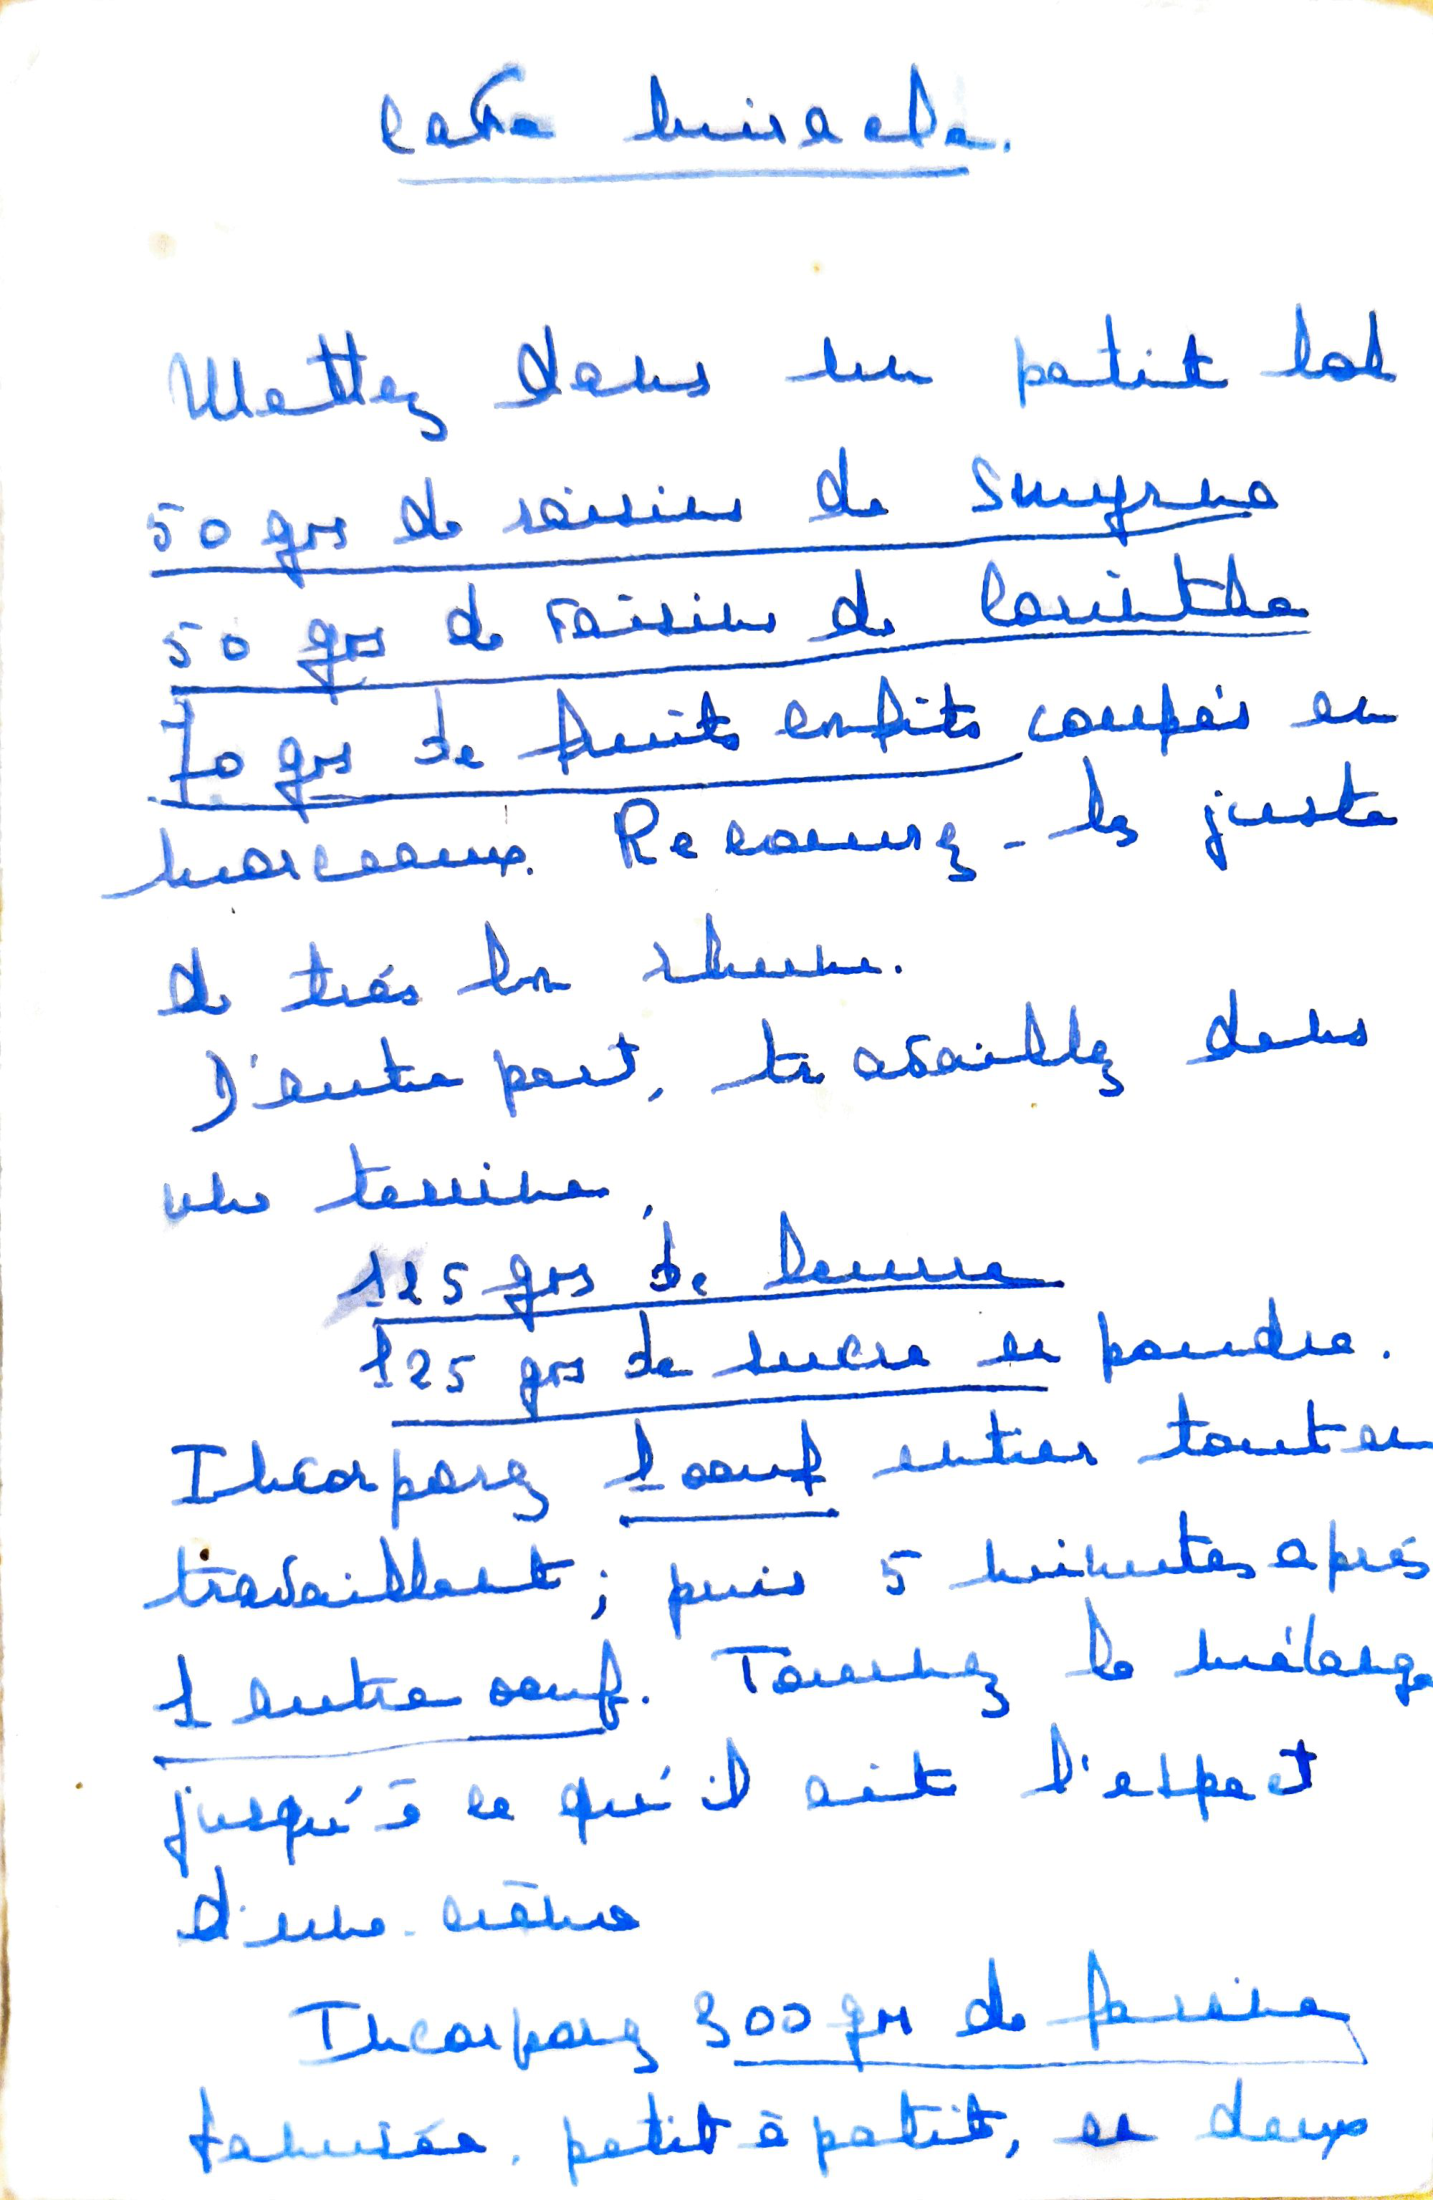 Cake miracle.
Mettez dans un petit bol
50 grs de raisins de Smyrne
50 grs de raisins de Corinthe
70 grs de fruits confits coupés en
morceaux. Recouvrez-les juste
de très bon rhum.
D'autre part, travaillez dans
une terrine,
125 grs de beurre
125 grs de sucre en poudre.
Incorporez 1 oeuf entier tout en
travaillant ; puis 5 minutes après
1 autre oeuf. Tournez le mélange
jusqu'à ce qu'il ait l'aspect
d'une crème
Incorporez 300 grs de farine
tamisée, petit à petit, en deux